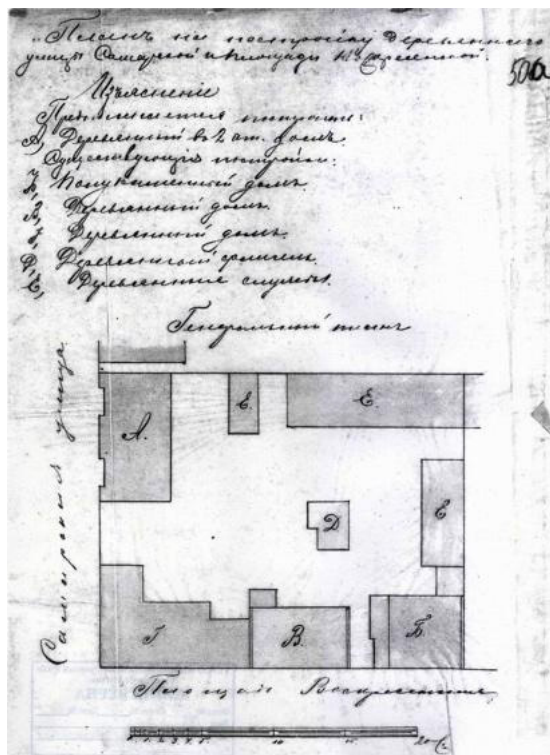 „Планъ на постройку деревяннаго
улицы Самарской и площади Воскресенской.
50а
Изъясненіе
Предполагается построить:
А, Деревянный въ 2 эт. домъ.
Существующія постройки:
Б, Полукаменный домъ.
В, Деревянный домъ.
Г, Деревянный домъ.
Д, Деревянный флигель.
Е, Деревянные службы.
Генеральный планъ
Самарская улица
А.
Е.
Е.
Е
Д
Г
В.
Б.
Площадь Воскресенская
1 2 3 4 5 10 15 20 с.